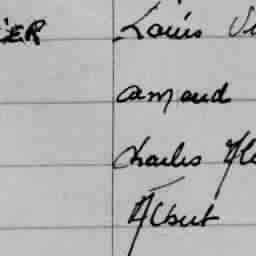 ER Louis
Armand
Charles
Albert